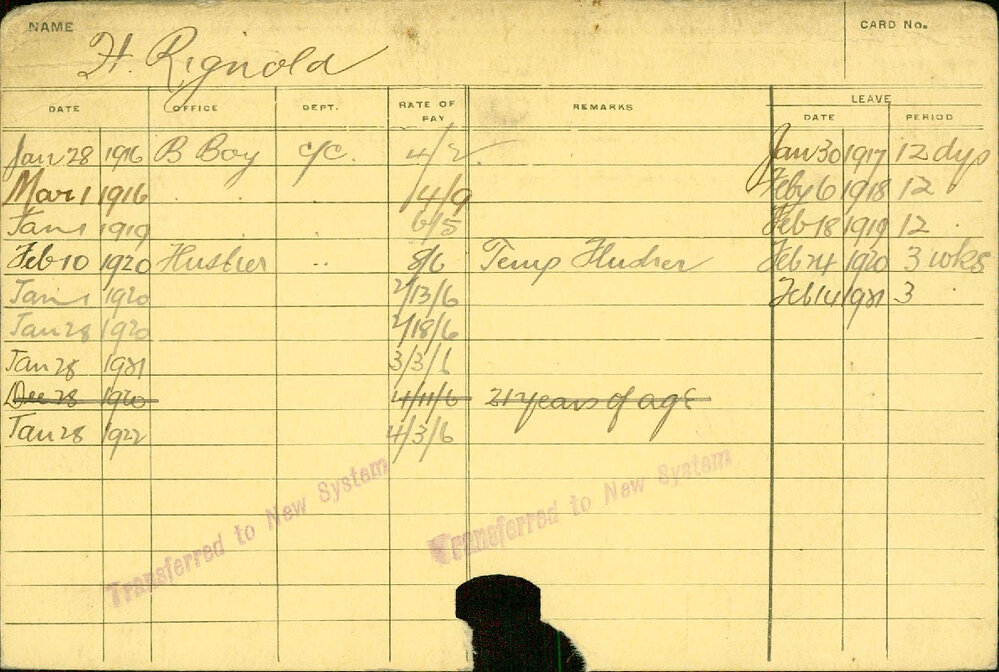 NAME H. Rignold CARD No.
DATE OFFICE DEPT. RATE OF PAY REMARKS LEAVE DATE PERIOD
Jan 28 1916 B Boy c/c. 4/2 Jan 30 1917 12 dys
Mar 1 1916 . . 4/9 Feby 6 1918 12
Jan 1 1919 6/5 Feb 18 1919 12
Feb 10 1920 Husher .. 8/6 Temp Hudher Feb 24 1920 3 wks
Jan 1 1920 2/13/6 Feb 14 1921 3
Jan 28 1920 2/18/6
Jan 28 1921 3/3/6
Dec 28 1920 4/11/6 21 years of age
Jan 28 1922 4/3/6
Transferred to New System
Transferred to New System